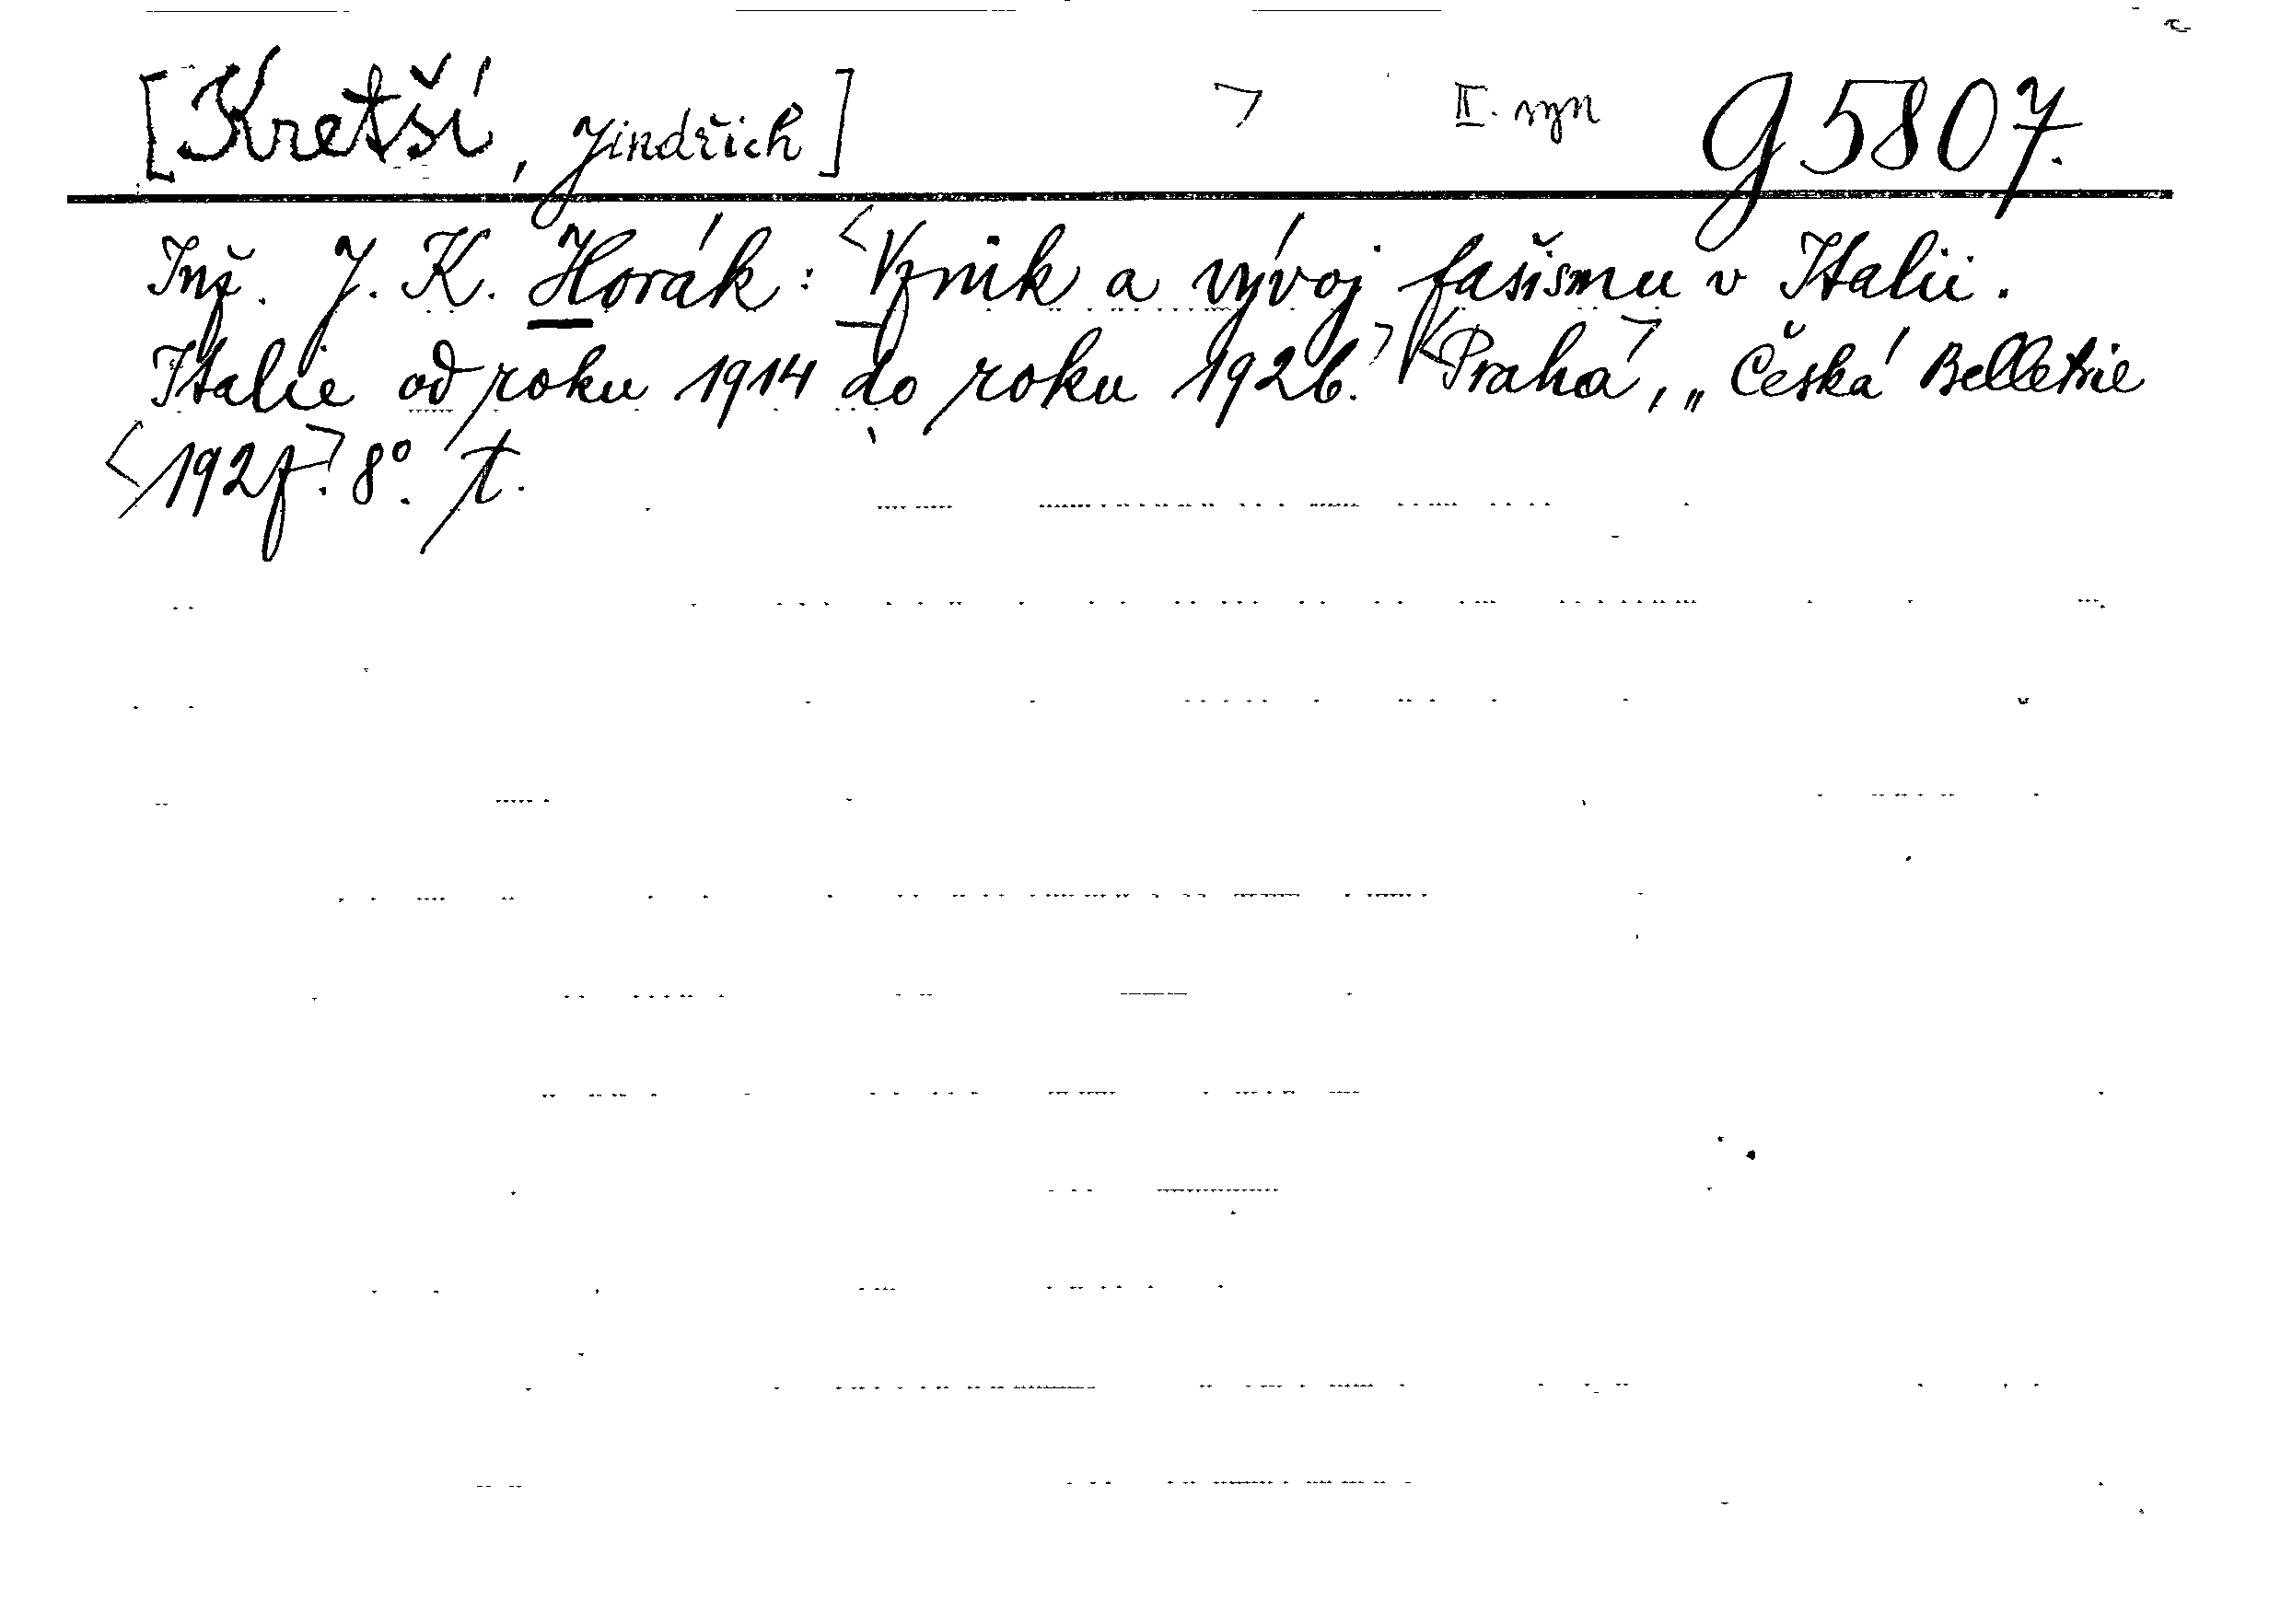 [Kretší, Jindřich] II. syn G 5807.
Inž. J. K. Horák: <Vznik a vývoj fašismu v Italii.
Italie od roku 1914 do roku 1926.> <Praha>, „Česká Belletrie
<1927.> 8°. t.